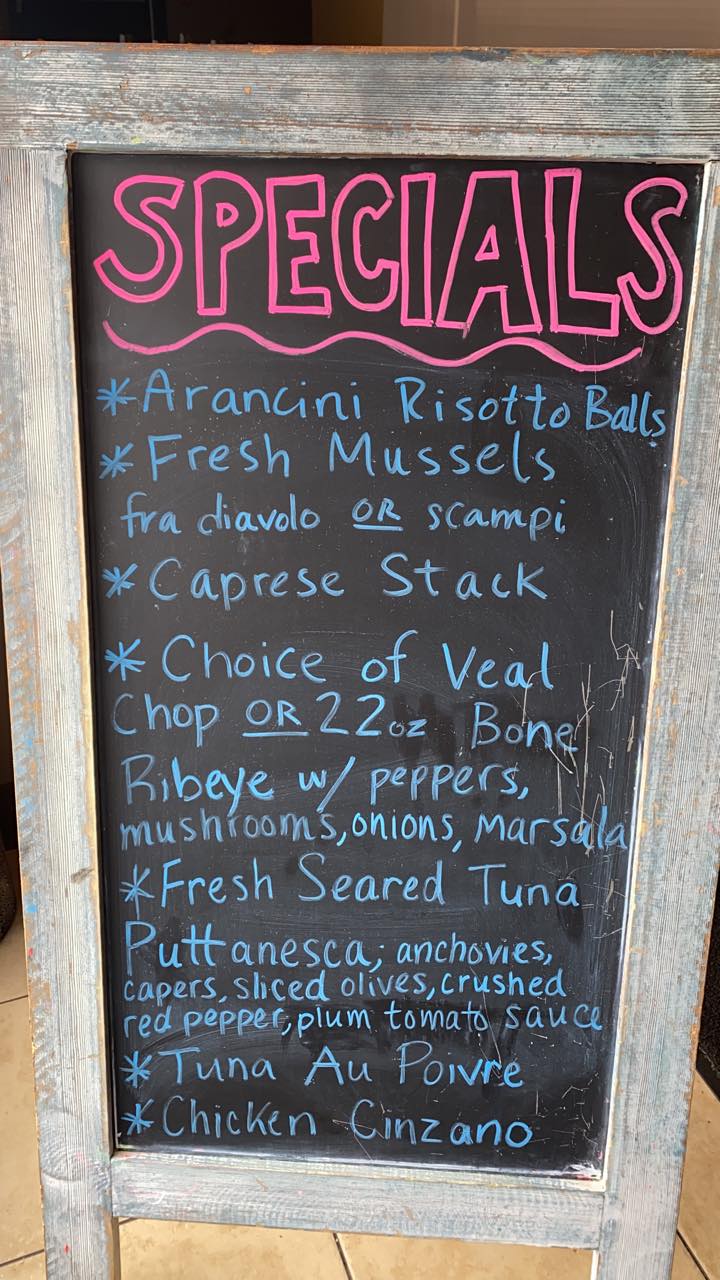 SPECIALS
*Arancini Risotto Balls
*Fresh Mussels
fra diavolo OR scampi
*Caprese Stack
*Choice of Veal
Chop OR 22oz Bone
Ribeye w/ peppers,
mushrooms, onions, Marsala
*Fresh Seared Tuna
Puttanesca; anchovies,
capers, sliced olives, crushed
red pepper, plum tomato sauce
*Tuna Au Poivre
*Chicken Cinzano